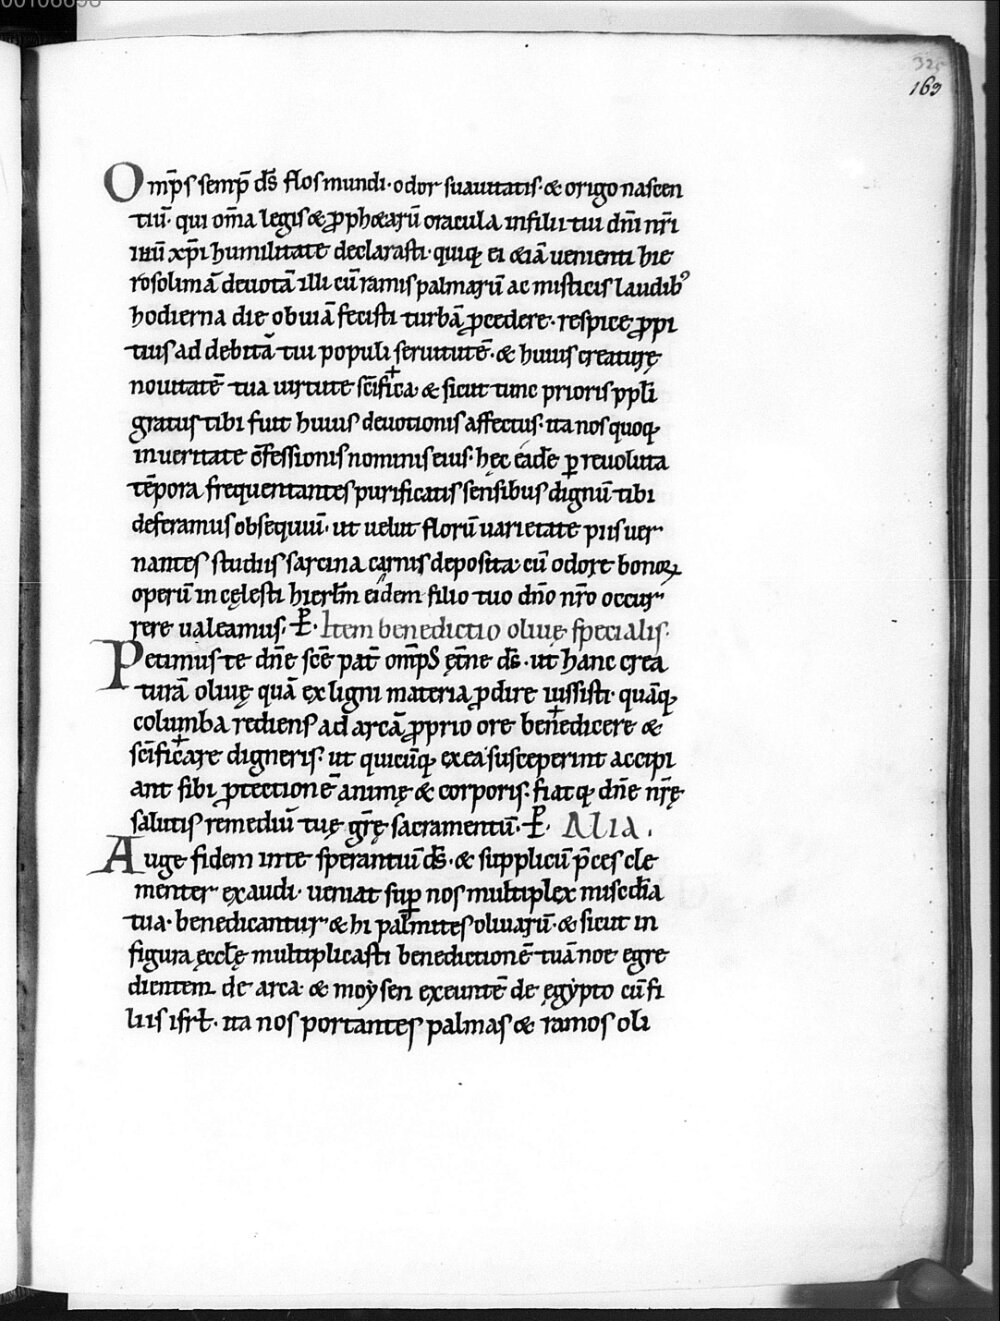 00106698
325
163
Omp̄s semp̄ ds̄ flos mundi · odor suauitatis · & origo nascen
tiū · qui om̄a legis & ꝓph&arū oracula in filii tui dn̄i nr̄i
ihū xp̄i humilitate declarasti · quiq; ei &iā uenienti hie
rosolimā deuotā illi cū ramis palmarū ac misticis laudibꝰ
hodierna die obuiā fecisti turbā ꝓcedere · respice ꝓpi
tius ad debitā tui populi seruitutē · & huius creaturę
nouitatē tua uirtute sc̄ifi✝ca · & sicut tunc prioris ppl̄i
gratus tibi fuit huius deuotionis affectus · ita nos quoq;
in ueritate c̄fessionis nominis eius · hęc eadē ꝑ reuoluta
tēpora frequentantes purificatis sensibus dignū tibi
deferamus obsequiū · ut uelut florū uarietate piis uer
nantes studiis sarcina carnis deposita · cū odore bonoꝝ
operū in cęlesti hierl̄m eidem filio tuo dn̄o nr̄o occur
rere ualeamus · P̄ · Item benedictio oliuę specialis ·
Petimus te dn̄e sc̄e pat̄ omp̄s ęt̄ne ds̄ · ut hanc crea
turā oliuę quā ex ligni materia ꝓdire iussisti · quāq;
columba rediens ad arcā ꝓprio ore bene✝dicere &
sc̄ifi✝care digneris · ut quicūq; ex ea susceperint accipi
ant sibi ꝓtectionē animę & corporis · fiatq; dn̄e nr̄ę
salutis remediū tuę gr̄ę sacramentū · P̄ · Alia ·
Auge fidem in te sperantiū ds̄ · & supplicū p̄ces cle
menter exaudi · ueniat suꝑ nos multiplex misc̄dia
tua · benedicantur & hi palmites oliuarū · & sicut in
figura ęccl̄ę multiplicasti benedictionē tuā noe egre
dientem de arca · & moẏsen exeuntē de ęgẏpto cū fi
liis isrl̄ · ita nos portantes palmas & ramos oli